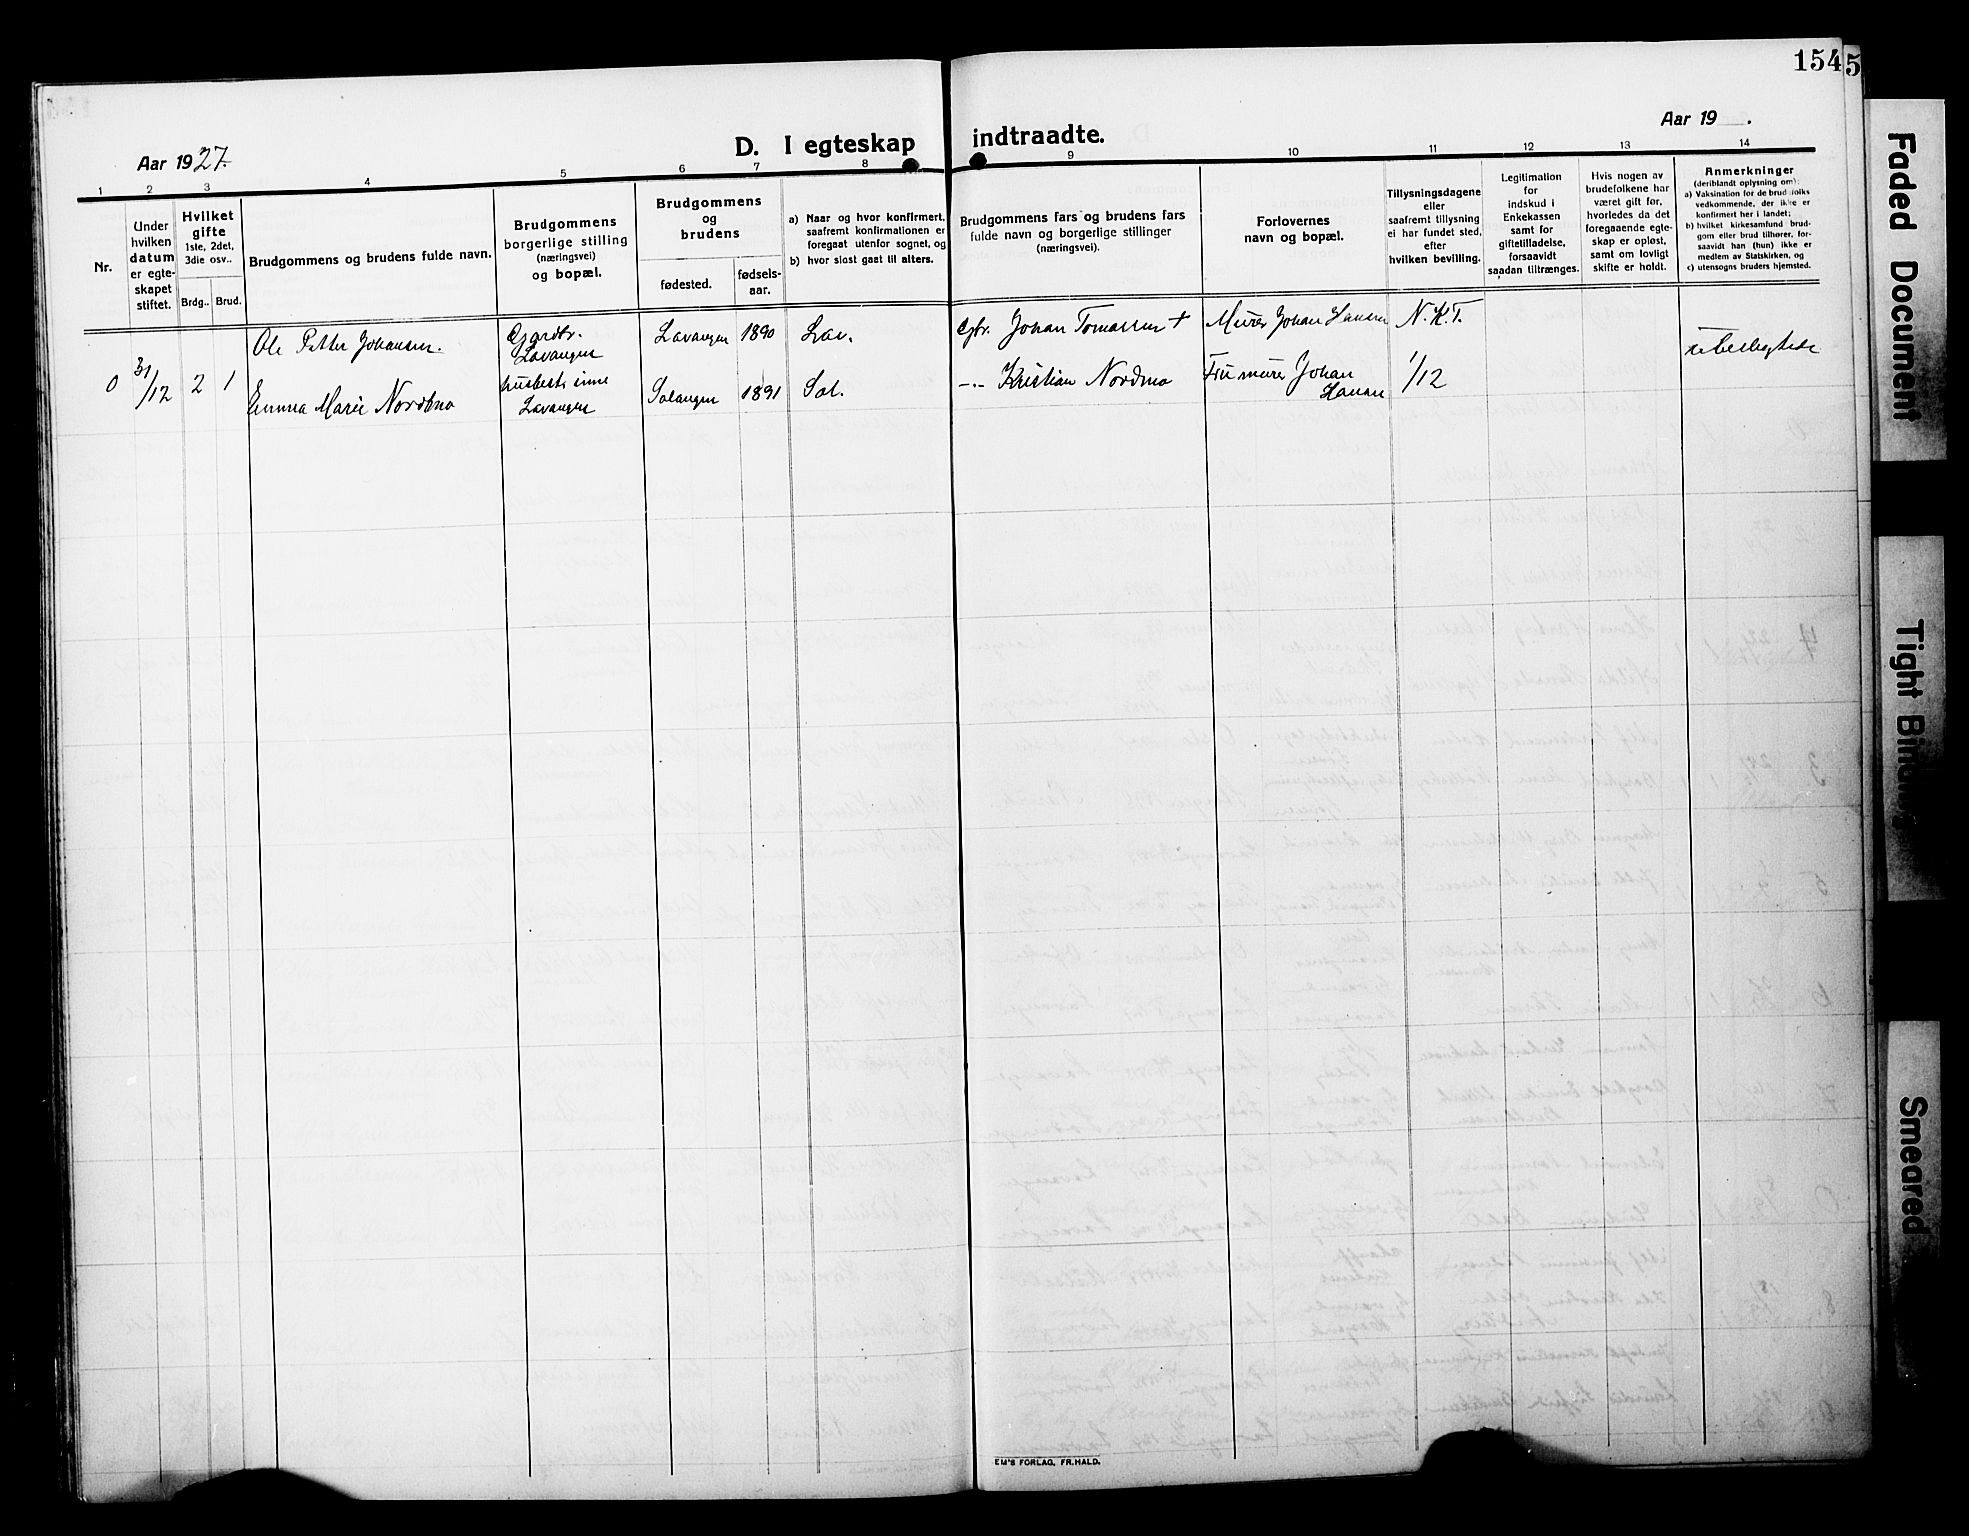 154
5
Aar 1927.
D. I egteskap indtraadte.
Aar 19 .
1
2
3
4
5
6
7
8
9
10
11
12
13
14
Nr.
Under
hvilken
datum
er egte-
skapet
stiftet.
Hvilket
gifte
1ste, 2det,
3die osv..
Brdg..
Brud.
Brudgommens og brudens fulde navn.
Brudgommens
borgerlige stilling
(næringsvei)
og bopæl.
Brudgommens
og
brudens
fødested.
fødsels-
aar.
a) Naar og hvor konfirmert,
saafremt konfirmationen er
foregaat utenfor sognet, og
b) hvor sidst gaat til alters.
Brudgommens fars og brudens fars
fulde navn og borgerlige stillinger
(næringsvei).
Forlovernes
navn og bopæl.
Tillysningsdagene
eller
saafremt tillysning
ei har fundet sted,
efter
hvilken bevilling.
Legitimation
for
indskud i
Enkekassen
samt for
giftetilladelse,
forsaavidt
saadan tiltrænges.
Hvis nogen av
brudefolkene har
været gift før,
hvorledes da det
foregaaende egte-
skap er opløst,
samt om lovligt
skifte er holdt.
Anmerkninger
(deriblandt oplysning om):
a) Vaksination for de brudefolks
vedkommende, der ikke er
konfirmert her i landet;
b) hvilket kirkesamfund brud-
gom eller brud tilhører, for-
saavidt han (hun) ikke er
medlem av Statskirken, og
c) utensogns bruders hjemsted.
0
31/12
2
1
Ole Petter Johansen.
Gaardbr.
Lavangen
Lavangen
1890
Lav.
Gbr. Johan Tomassen +
Murer Johan Hansen
N.K.T.
ubeslegtede
Emma Marie Nordmo
husbestyrinne
Lavangen
Salangen
1891
Sal.
-"- Kristian Nordmo
Fru murer Johan
Hansen
1/12
EM'S FORLAG, FR.HALD.
Faded Document
Tight Binding
Smeared